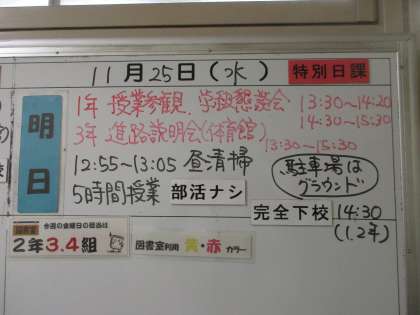 11月25日(水) 特別日課
明日
1年 授業参観、学級懇談会 13:30～14:20
14:30～15:30
3年 進路説明会(体育館)
13:30～15:30
12:55～13:05 昼清掃
駐車場は
グラウンド
5時間授業 部活ナシ
完全下校 14:30
(1.2年)
図書室 今週の金曜日の担当は
2年3.4組
図書室利用 黄・赤 カラー